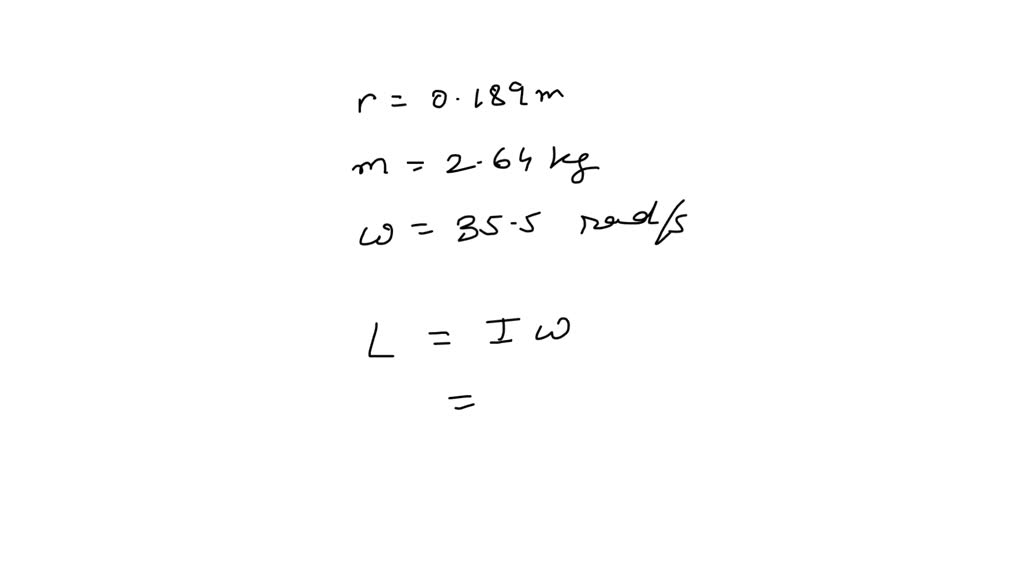 r = 0.189 m
m = 2.64 kg
ω = 35.5 rad/s
L = I ω
=